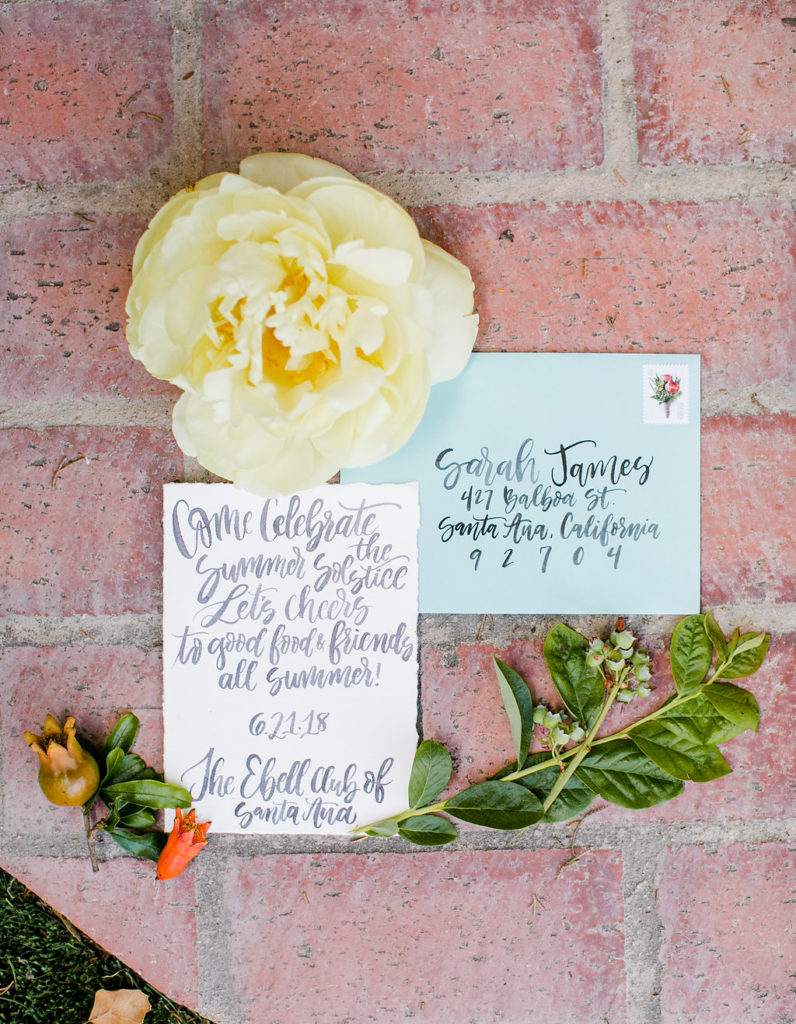 Come Celebrate
the
Summer Solstice
Let's cheers
to good food & friends
all summer!
6.21.18
The Ebell Club of
Santa Ana
Sarah James
427 Balboa St.
Santa Ana, California
9 2 7 0 4